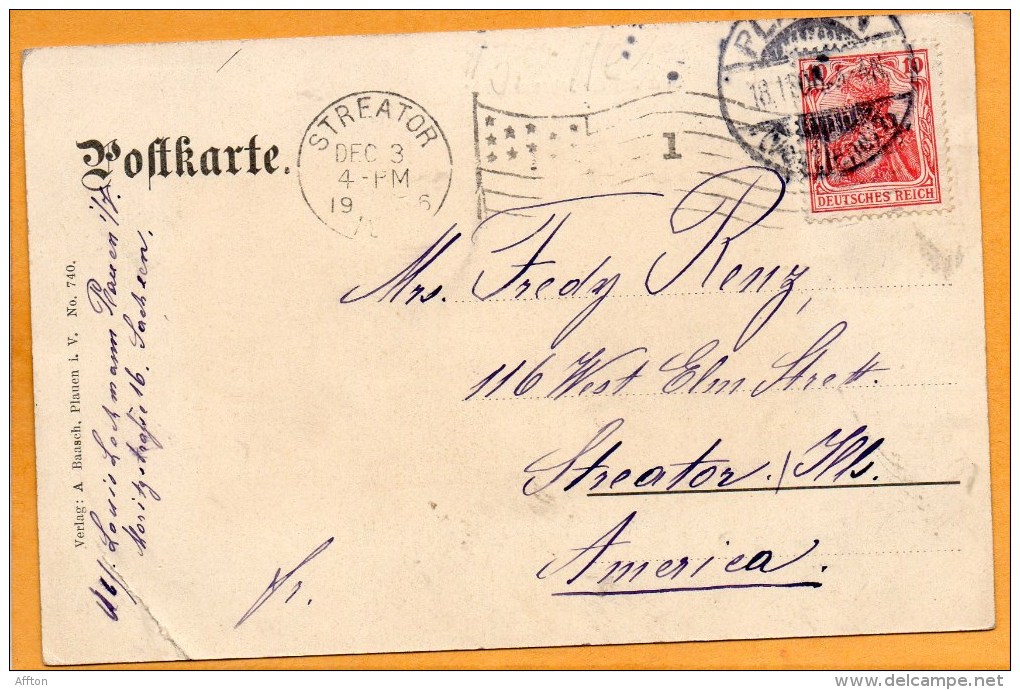 Postkarte.
STREATOR
DEC 3
4-PM
19 6
1
18.11.06.
10 10
DEUTSCHES REICH
Mrs. Fredy Renz,
116 West Elm Strett.
Streator. Ills.
America.
fr.
Abs. Louis Lochmann Plauen i/V.
Moritzstraße 16. Sachsen.
Verlag: A Baasch, Plauen i. V. No. 740.
Affton
delcampe.net